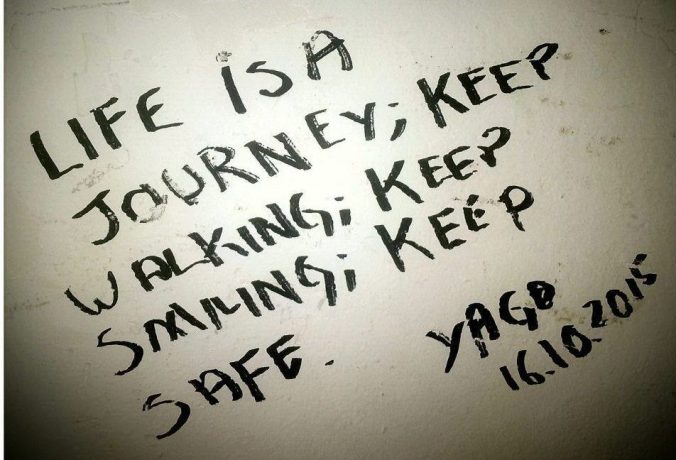 LIFE iS A
JOURNEY; KEEP
WALKING; KEEP
SMILING; KEEP
SAFE.
YAGO
16.10.2015